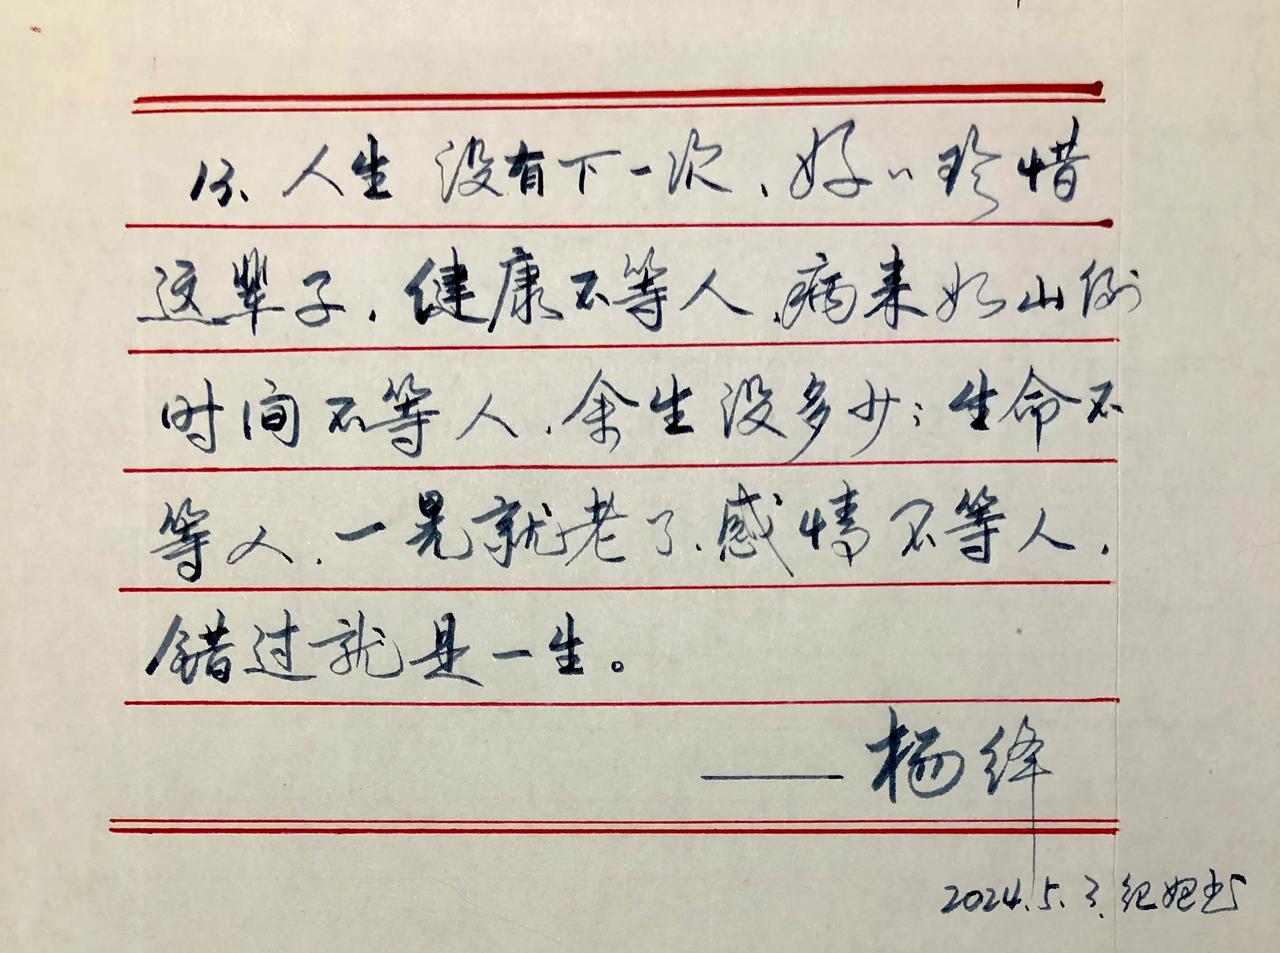 13、人生没有下一次、好〃珍惜
这辈子.健康不等人、病来如山倒
时间不等人.余生没多少;生命不
等人.一晃就老了.感情不等人.
错过就是一生。
——杨绛
2024.5.3.纪妲书